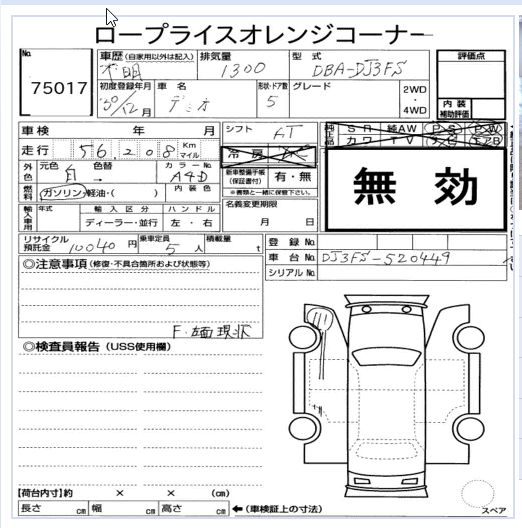 ロープライスオレンジコーナー
No. 75017
車歴 (自家用以外は記入) 不明
排気量 1300
型 式 DBA-DJ3FS
評価点
初度登録年月 30/12月
車 名 デミオ
形状・ドア数 5
グレード
2WD
・
4WD
内 装
補助評価
車検 年 月
シフト AT
純正品 SR 純AW PS PW
カワ TV ナビ エアB
走行 56,208 Km マイル
冷 房
無 効
外色 元色 白 色替 → カラーNo. A4D
新車整備手帳
(保証書付) 有・無
※書類と一緒に保管下さい。
燃料 ガソリン・軽油・( ) 内 装 色
名義変更期限
月 日
輸入車用 年式 輸 入 区 分 ハ ン ド ル
ディーラー・並行 左 ・ 右
リサイクル
預託金 10040 円
乗車定員 5 人
積載量 t
登 録 No.
車 台 No. DJ3FS-520449
シリアル No.
◎注意事項 (修復・不具合箇所および状態等)
F・左面現状
◎検査員報告 (USS使用欄)
【荷台内寸】約 × × (cm)
長さ cm 幅 cm 高さ cm ←(車検証上の寸法)
スペア